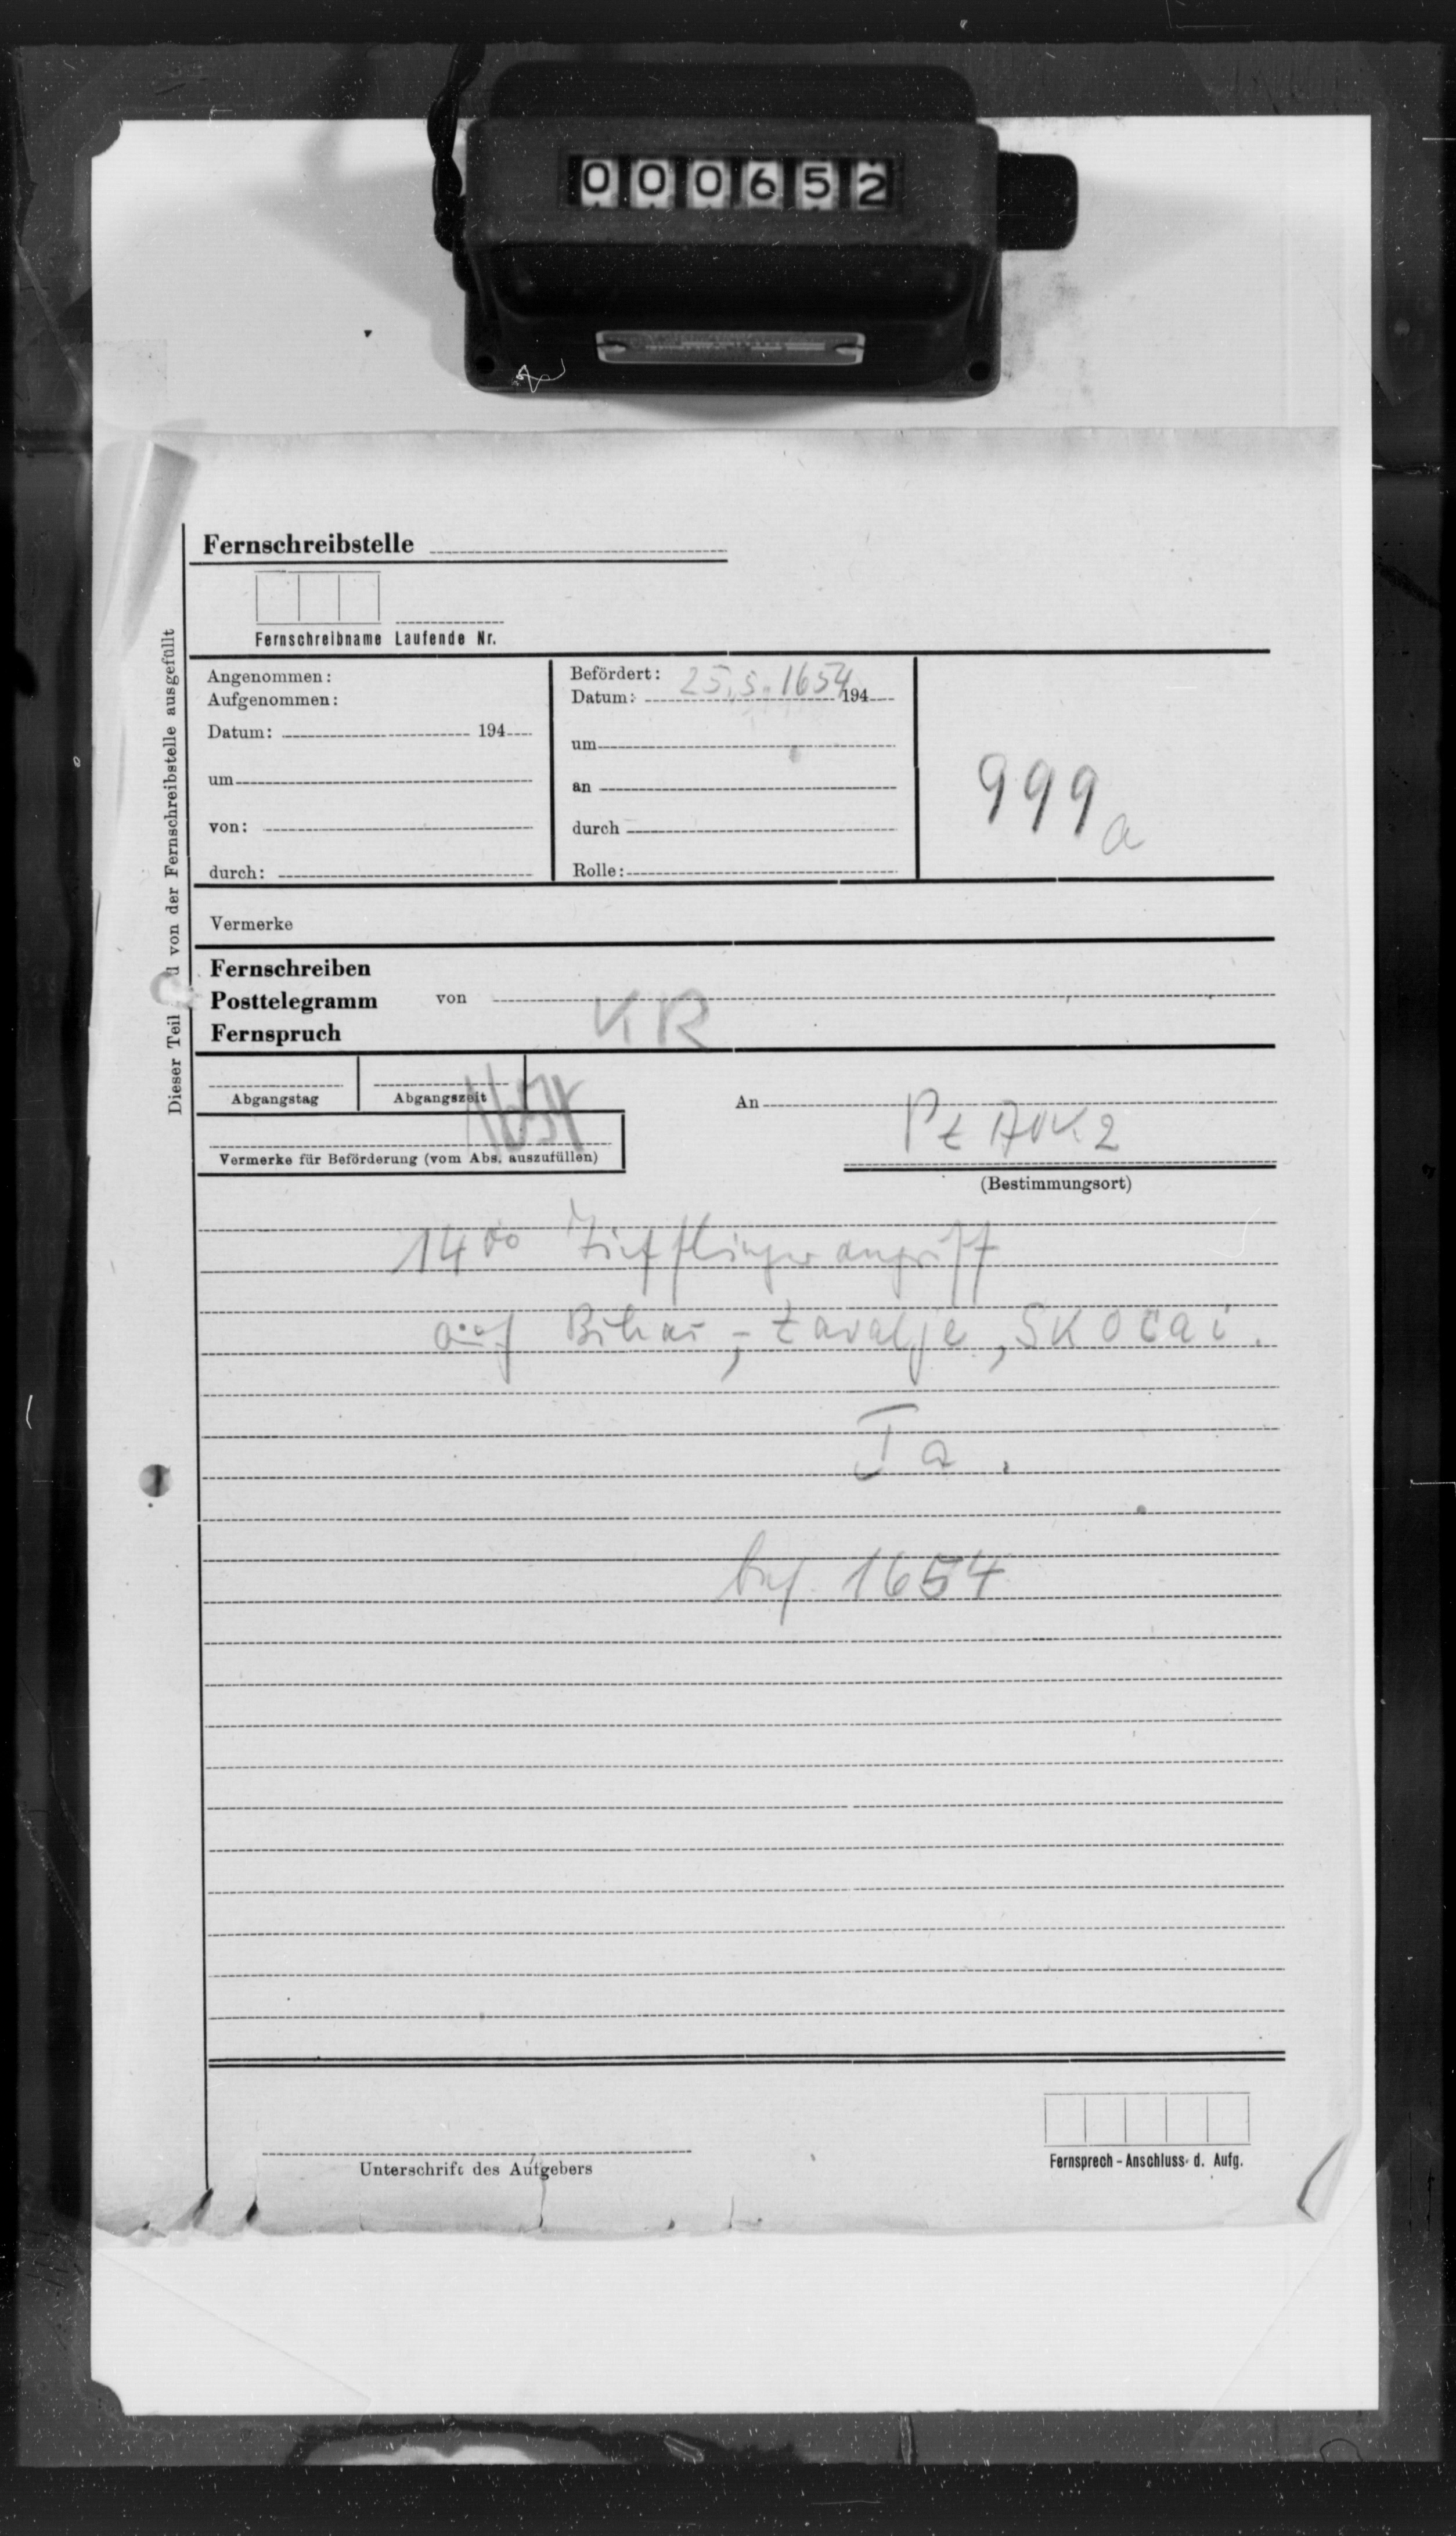 000652
Fernschreibstelle
Fernschreibname Laufende Nr.
Angenommen:
Aufgenommen:
Datum: 194
um
von:
durch:
Befördert:
Datum: 25.5. 1654 194
um
an
durch
Rolle:
999 a
Vermerke
Fernschreiben
Posttelegramm von
Fernspruch
KR
Abgangstag
Abgangszeit
1654
Vermerke für Beförderung (vom Abs. auszufüllen)
An
Pz AOK 2
(Bestimmungsort)
14⁰⁰ Tieffliegerangriff
auf Bihac, - Zavalje, SKOČAI.
Ia.
bef. 1654
Unterschrift des Aufgebers
Fernsprech-Anschluss d. Aufg.
Dieser Teil von der Fernschreibstelle ausgefüllt